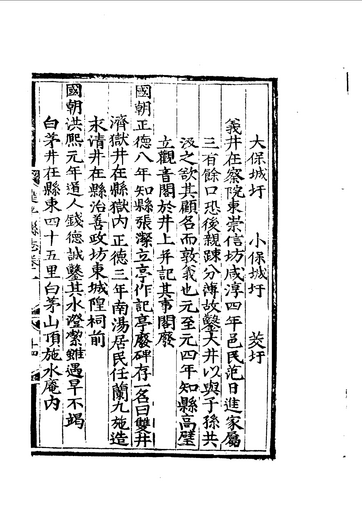 大保城圩　小保城圩　茭圩
義井在察院東崇信坊咸淳四年邑民范日進家屬
三百餘口恐後親踈分薄故鑿大井以與子孫共
汲之欲其顧名而敦義也元至元四年知縣高璧
立觀音閣於井上并記其事閣廢
國朝正德八年知縣張潔立亭作記亭廢碑存一名曰雙井
濟獄井在縣獄內正德三年南湯居民任蘭九施造
末清井在縣治善政坊東城隍祠前
國朝洪熙元年道人錢德誠鑿其水澄潔雖遇旱不竭
白茅井在縣東四十五里白茅山頂施水庵內